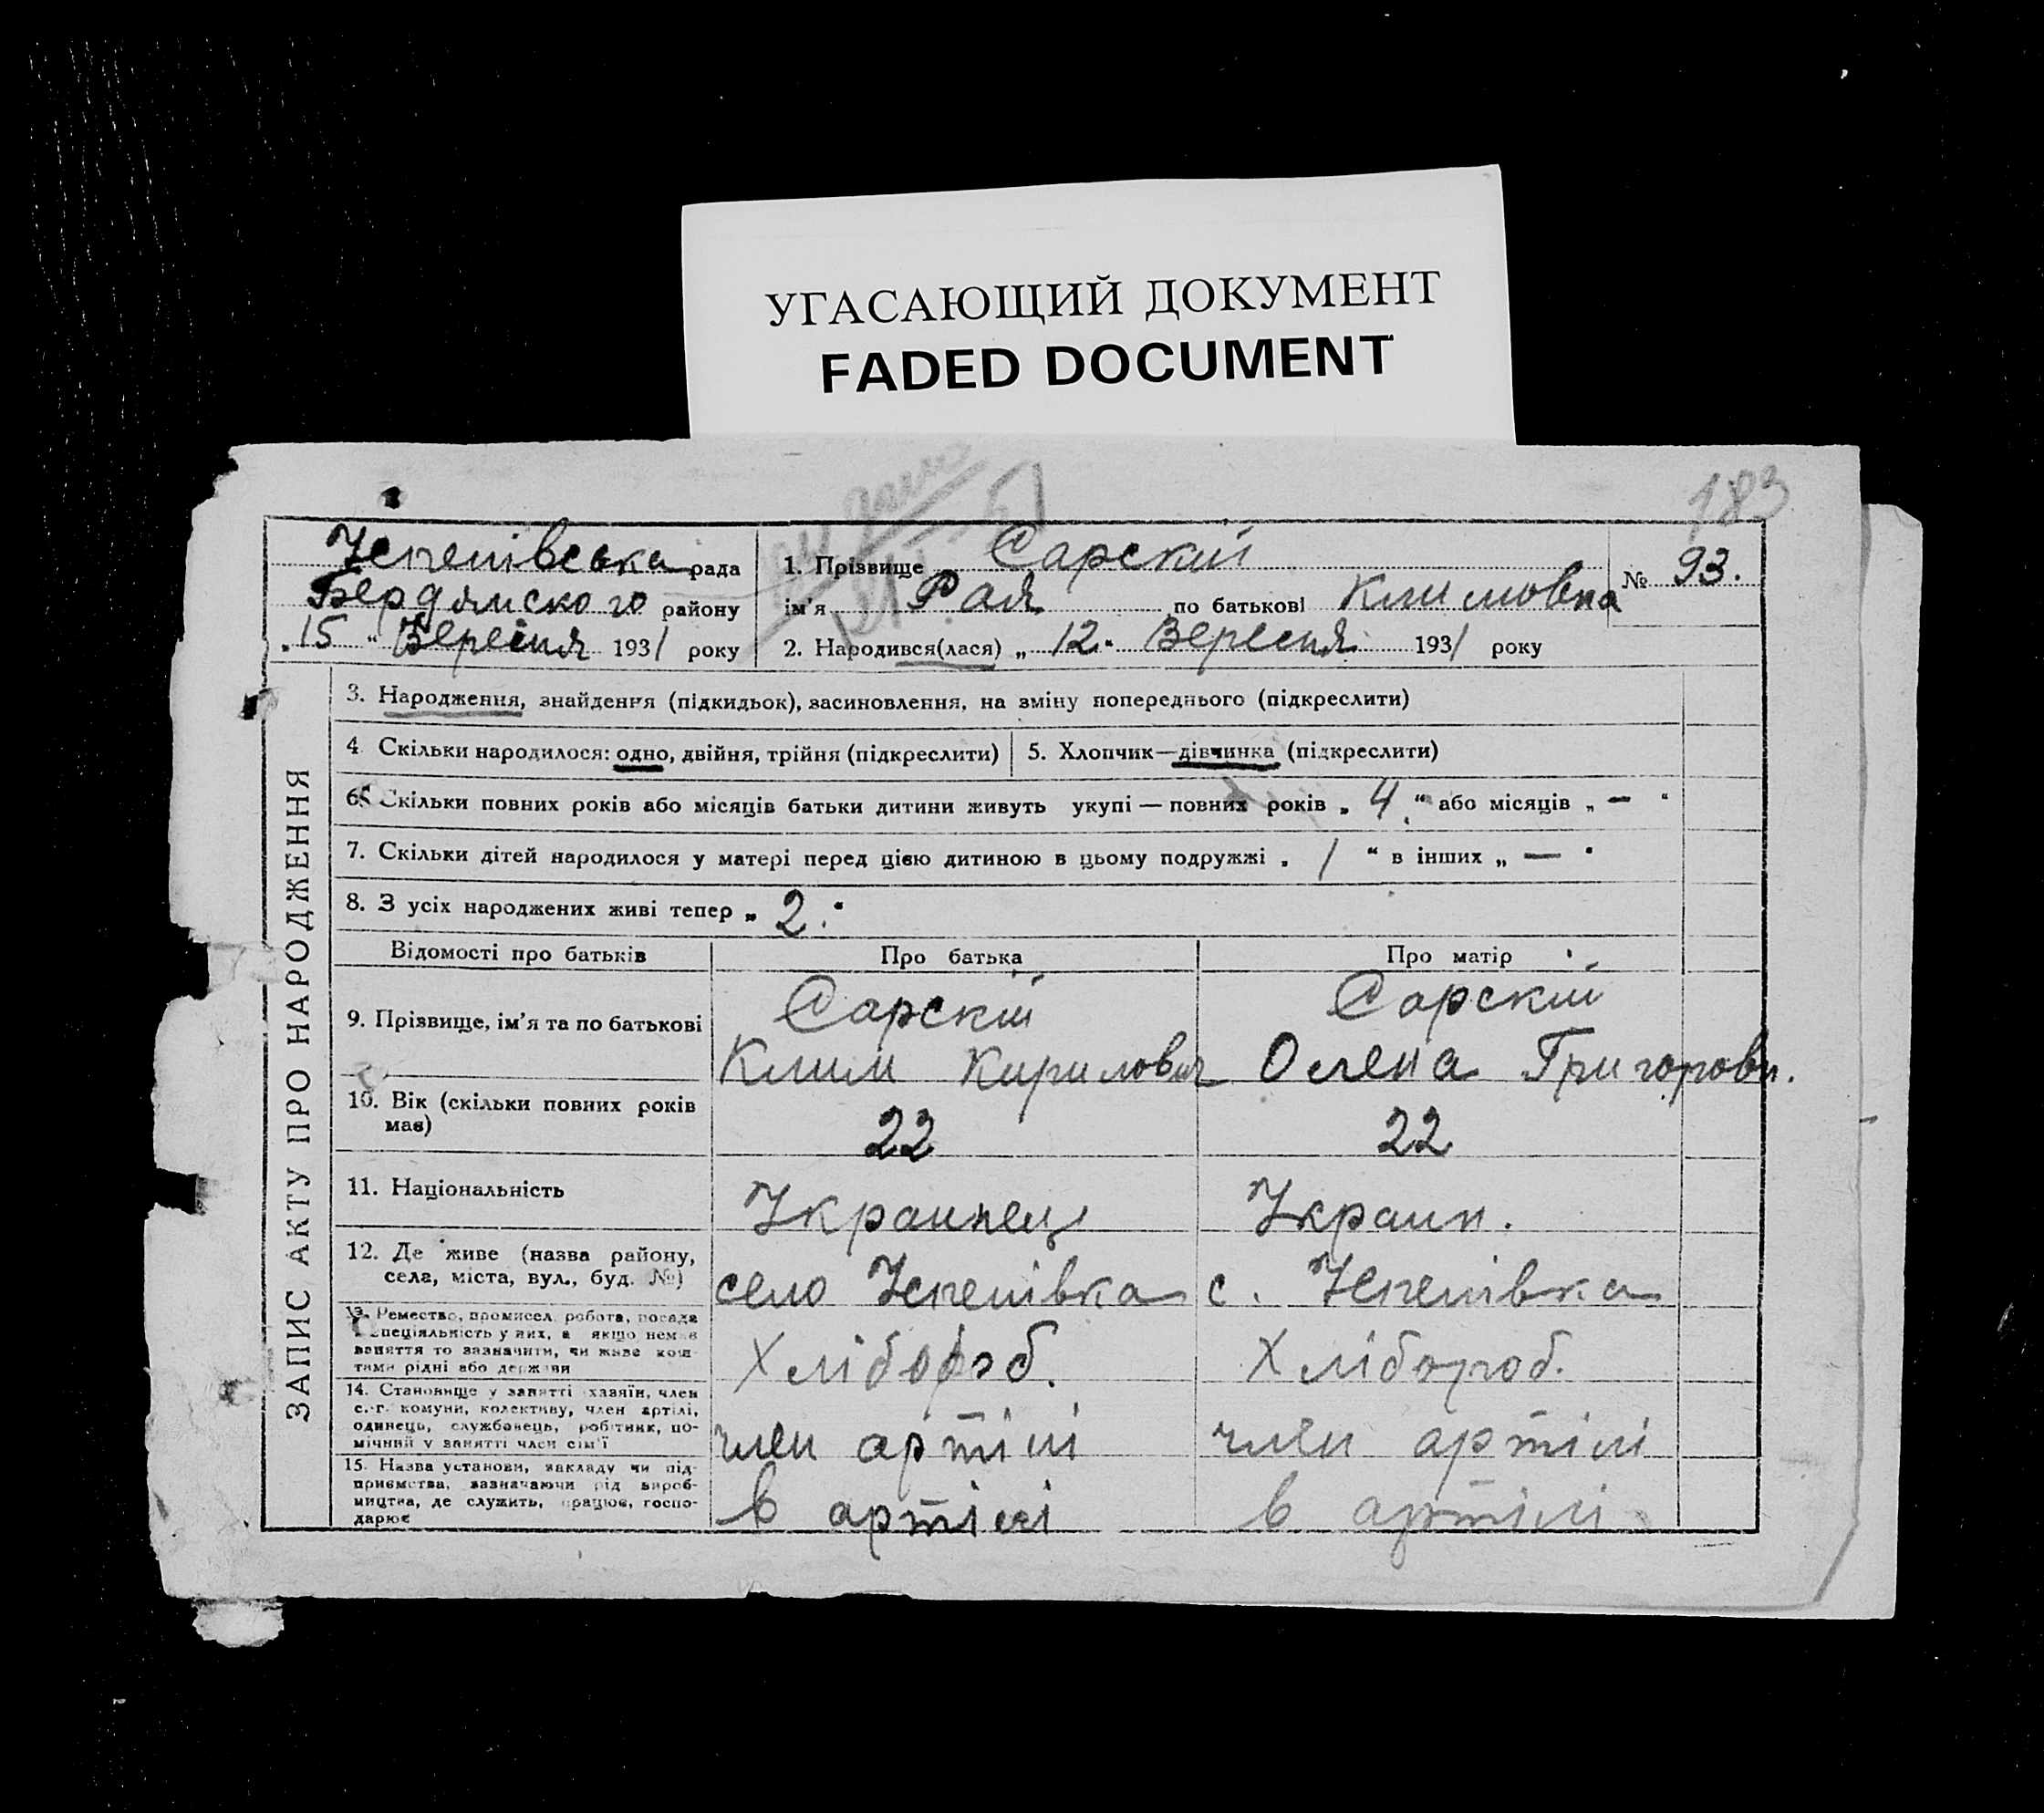 УГАСАЮЩИЙ ДОКУМЕНТ
FADED DOCUMENT
183
Успенівська рада
Бердянского району
„15“ Вересня 1931 року
1. Прізвище Сарскій
№ 93.
ім'я Рая по батькові Климовна
2. Народився(лася) „12“ Вересня 1931 року
ЗАПИС АКТУ ПРО НАРОДЖЕННЯ
3. Народження, знайдення (підкидьок), засиновлення, на зміну попереднього (підкреслити)
4. Скільки народилося: одно, двійня, трійня (підкреслити)
5. Хлопчик—дівчинка (підкреслити)
6. Скільки повних років або місяців батьки дитини живуть укупі — повних років „4“ або місяців „—“
7. Скільки дітей народилося у матері перед цією дитиною в цьому подружжі „1“ в інших „—“
8. З усіх народжених живі тепер „2“
Відомості про батьків
Про батька
Про матір
9. Прізвище, ім'я та по батькові
Сарскій
Клим Кирилович
Сарскій
Олена Григоровн.
10. Вік (скільки повних років
має)
22
22
11. Національність
Украинец
Украин.
12. Де живе (назва району,
села, міста, вул., буд. №)
село Успенівка
с. Успенівка
13. Ремество, промисел, робота, посада
спеціяльність у них, а якщо немає
заняття то зазначити, чи живе кош-
тами рідні або держави
Хлібороб.
Хлібороб.
14. Становище у занятті хазяїн, член
с.-г. комуни, колективу, член артілі,
одинець, службовець, робітник, по-
мічний у занятті член сім'ї
член артілі
член артілі
15. Назва установи, закладу чи під-
приємства, зазначаючи рід вироб-
ництва, де служить, працює, госпо-
дарює
в артілі
в артілі